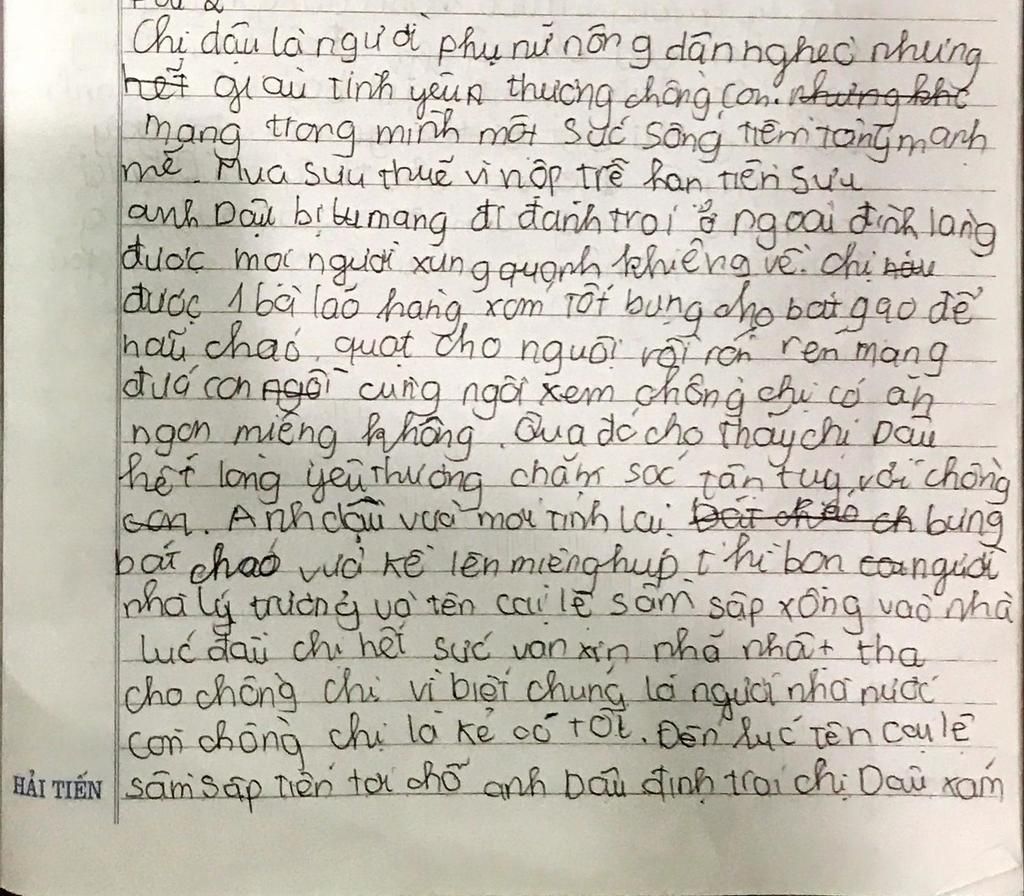 Câu 2
Chị dậu là người phụ nữ nông dân nghèo nhưng
hết giàu tình yêun thương chồng con. nhưng khc
mang trong mình một sức sống tiềm tàng mạnh
mẽ. Mùa sưu thuế vì nộp trễ hạn tiền sưu
anh Dậu bị bu mang đi đánh trói ở ngoài đình làng
được mọi người xung quanh khiêng về. chị
được 1 bà lão hàng xóm tốt bụng cho bát gạo để
nấu cháo, quạt cho nguội rồi rón rén mang
đứa con ngồi cùng ngồi xem chồng chị có ăn
ngon miệng không. Qua đó cho thấy chị Dậu
hết lòng yêu thương chăm sóc tận tụy với chồng
con. Anh dậu vừa mới tỉnh lại. Bát cháo ch bưng
bát cháo vừa kề lên miệng húp thì bọn người
nhà lý trưởng và tên cai lệ sầm sập xông vào nhà
lúc đầu chị hết sức van xin nhã nhặt tha
cho chồng chị vì biết chúng là người nhà nước
còn chồng chị là kẻ có tội. Đến lúc tên cai lệ
sầm sập tiến tới chỗ anh Dậu định trói chị Dậu xám
HẢI TIẾN